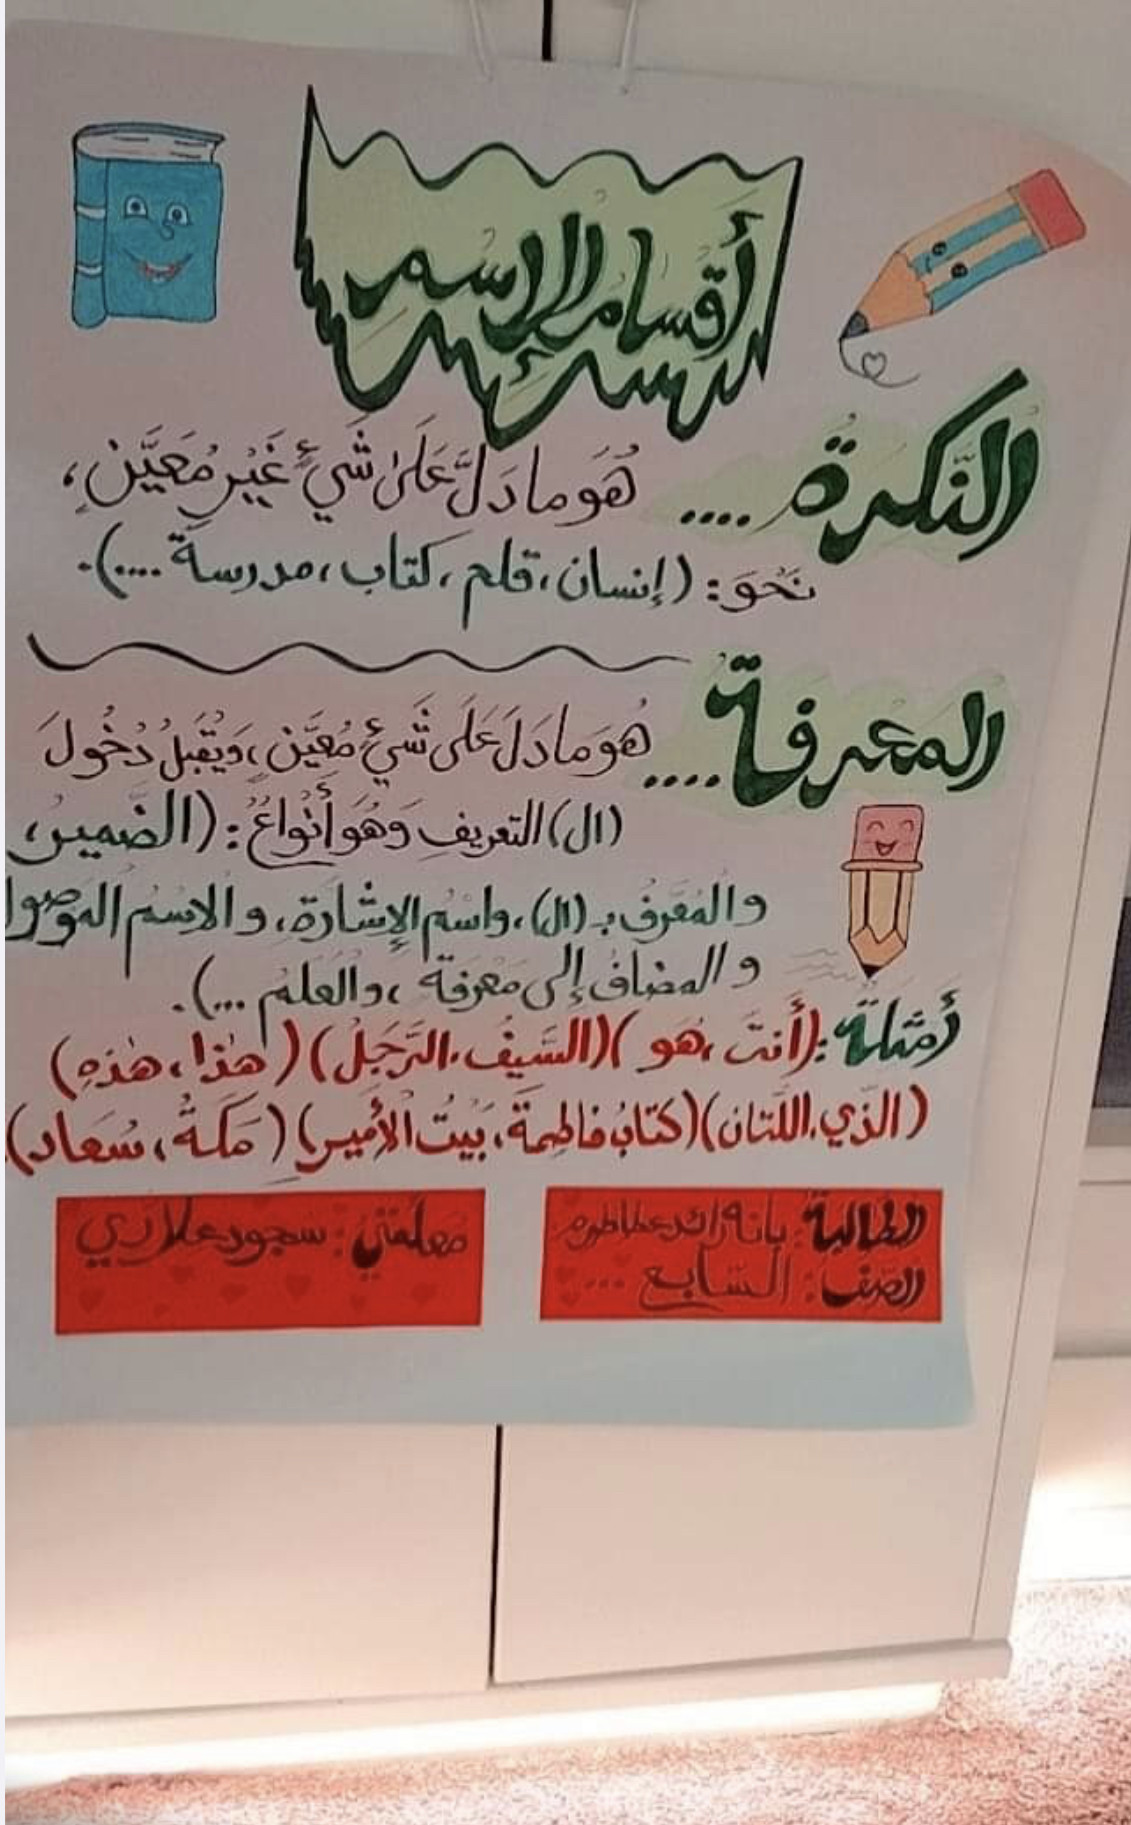 أقسام الإسم
النكرة .... هُوَ ما دَلَّ عَلىٰ شَيْءٍ غَيْرِ مُعَيَّنٍ،
نَحْوَ: (إنسان، قلم، كتاب، مدرسة ....).
المعرفة .... هُوَ ما دَلَ عَلَى شَيْءٍ مُعَيَّنٍ، وَيُقْبَلُ دُخُولَ
(ال) التعريفِ وَهُوَ أَنْواعٌ: (الضميرُ،
والمُعَرفُ بـ (ال)، واسْمُ الإِشارَةِ، والاسْمُ الموصول
والمضافُ إلى مَعْرِفة، والعَلَمُ ...).
أمثلة: (أَنتَ، هُو) (السَّيفُ، الرَّجُلُ) (هٰذا، هٰذهِ)
(الذّي، اللّتان) (كتابُ فاطمةَ، بَيْتُ الأميرِ) (مَكةُ، سُعاد).
الطالبة: بانة رائد
الصف: السابع ...
معلمتي: سجود